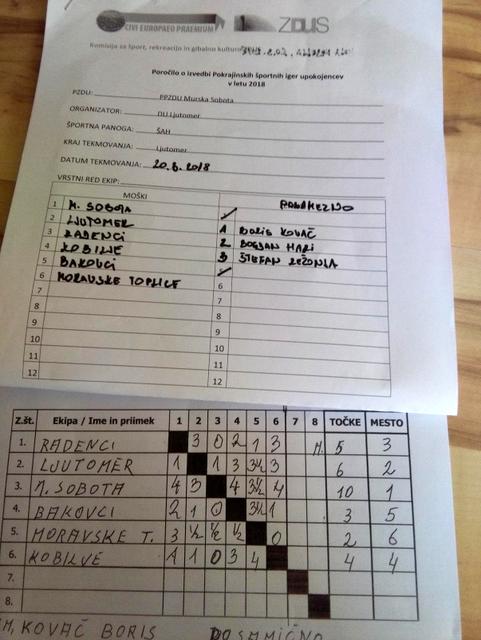 CIVI EUROPAEO PRAEMIUM ZDUS
Komisija za šport, rekreacijo in gibalno kulturo
Poročilo o izvedbi Pokrajinskih športnih iger upokojencev
v letu 2018
PZDU: PPZDU Murska Sobota
ORGANIZATOR: DU Ljutomer
ŠPORTNA PANOGA: ŠAH
KRAJ TEKMOVANJA: Ljutomer
DATUM TEKMOVANJA: 20.6.2018
VRSTNI RED EKIP:
MOŠKI POSAMEZNO
1 M. SOBOTA
2 LJUTOMER 1 BORIS KOVAČ
3 RADENCI 2 BOGDAN HARI
4 KOBILJE 3 ŠTEFAN
5 BAKOVCI
6 MORAVSKE TOPLICE 6
7 7
8 8
9 9
10 10
11 11
12 12
Z.št. Ekipa / Ime in priimek 1 2 3 4 5 6 7 8 TOČKE MESTO
1. RADENCI 3 0 2 1 3 5 3
2. LJUTOMER 1 1 3 3½ 3 6 2
3. M. SOBOTA 4 3 4 3½ 4 10 1
4. BAKOVCI 2 1 0 3½ 1 3 5
5. MORAVSKE T. 3 ½ ½ ½ 0 2 6
6. KOBILJE 1 1 0 3 4 4 4
7.
8.
KOVAČ BORIS POSAMIČNO